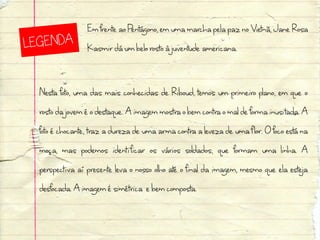 LEGENDA
Em frente ao Pentágono, em uma marcha pela paz no Vietnã, Jane Rosa
Kasmir dá um belo rosto à juventude americana.
Nesta foto, uma das mais conhecidas de Riboud, temos um primeiro plano, em que o
rosto da jovem é o destaque. A imagem mostra o bem contra o mal de forma inusitada. A
foto é chocante, traz a dureza de uma arma contra a leveza de uma flor. O foco está na
moça, mas podemos identificar os vários soldados, que formam uma linha. A
perspectiva aí presente leva o nosso olho até o final da imagem, mesmo que ela esteja
desfocada. A imagem é simétrica e bem composta.